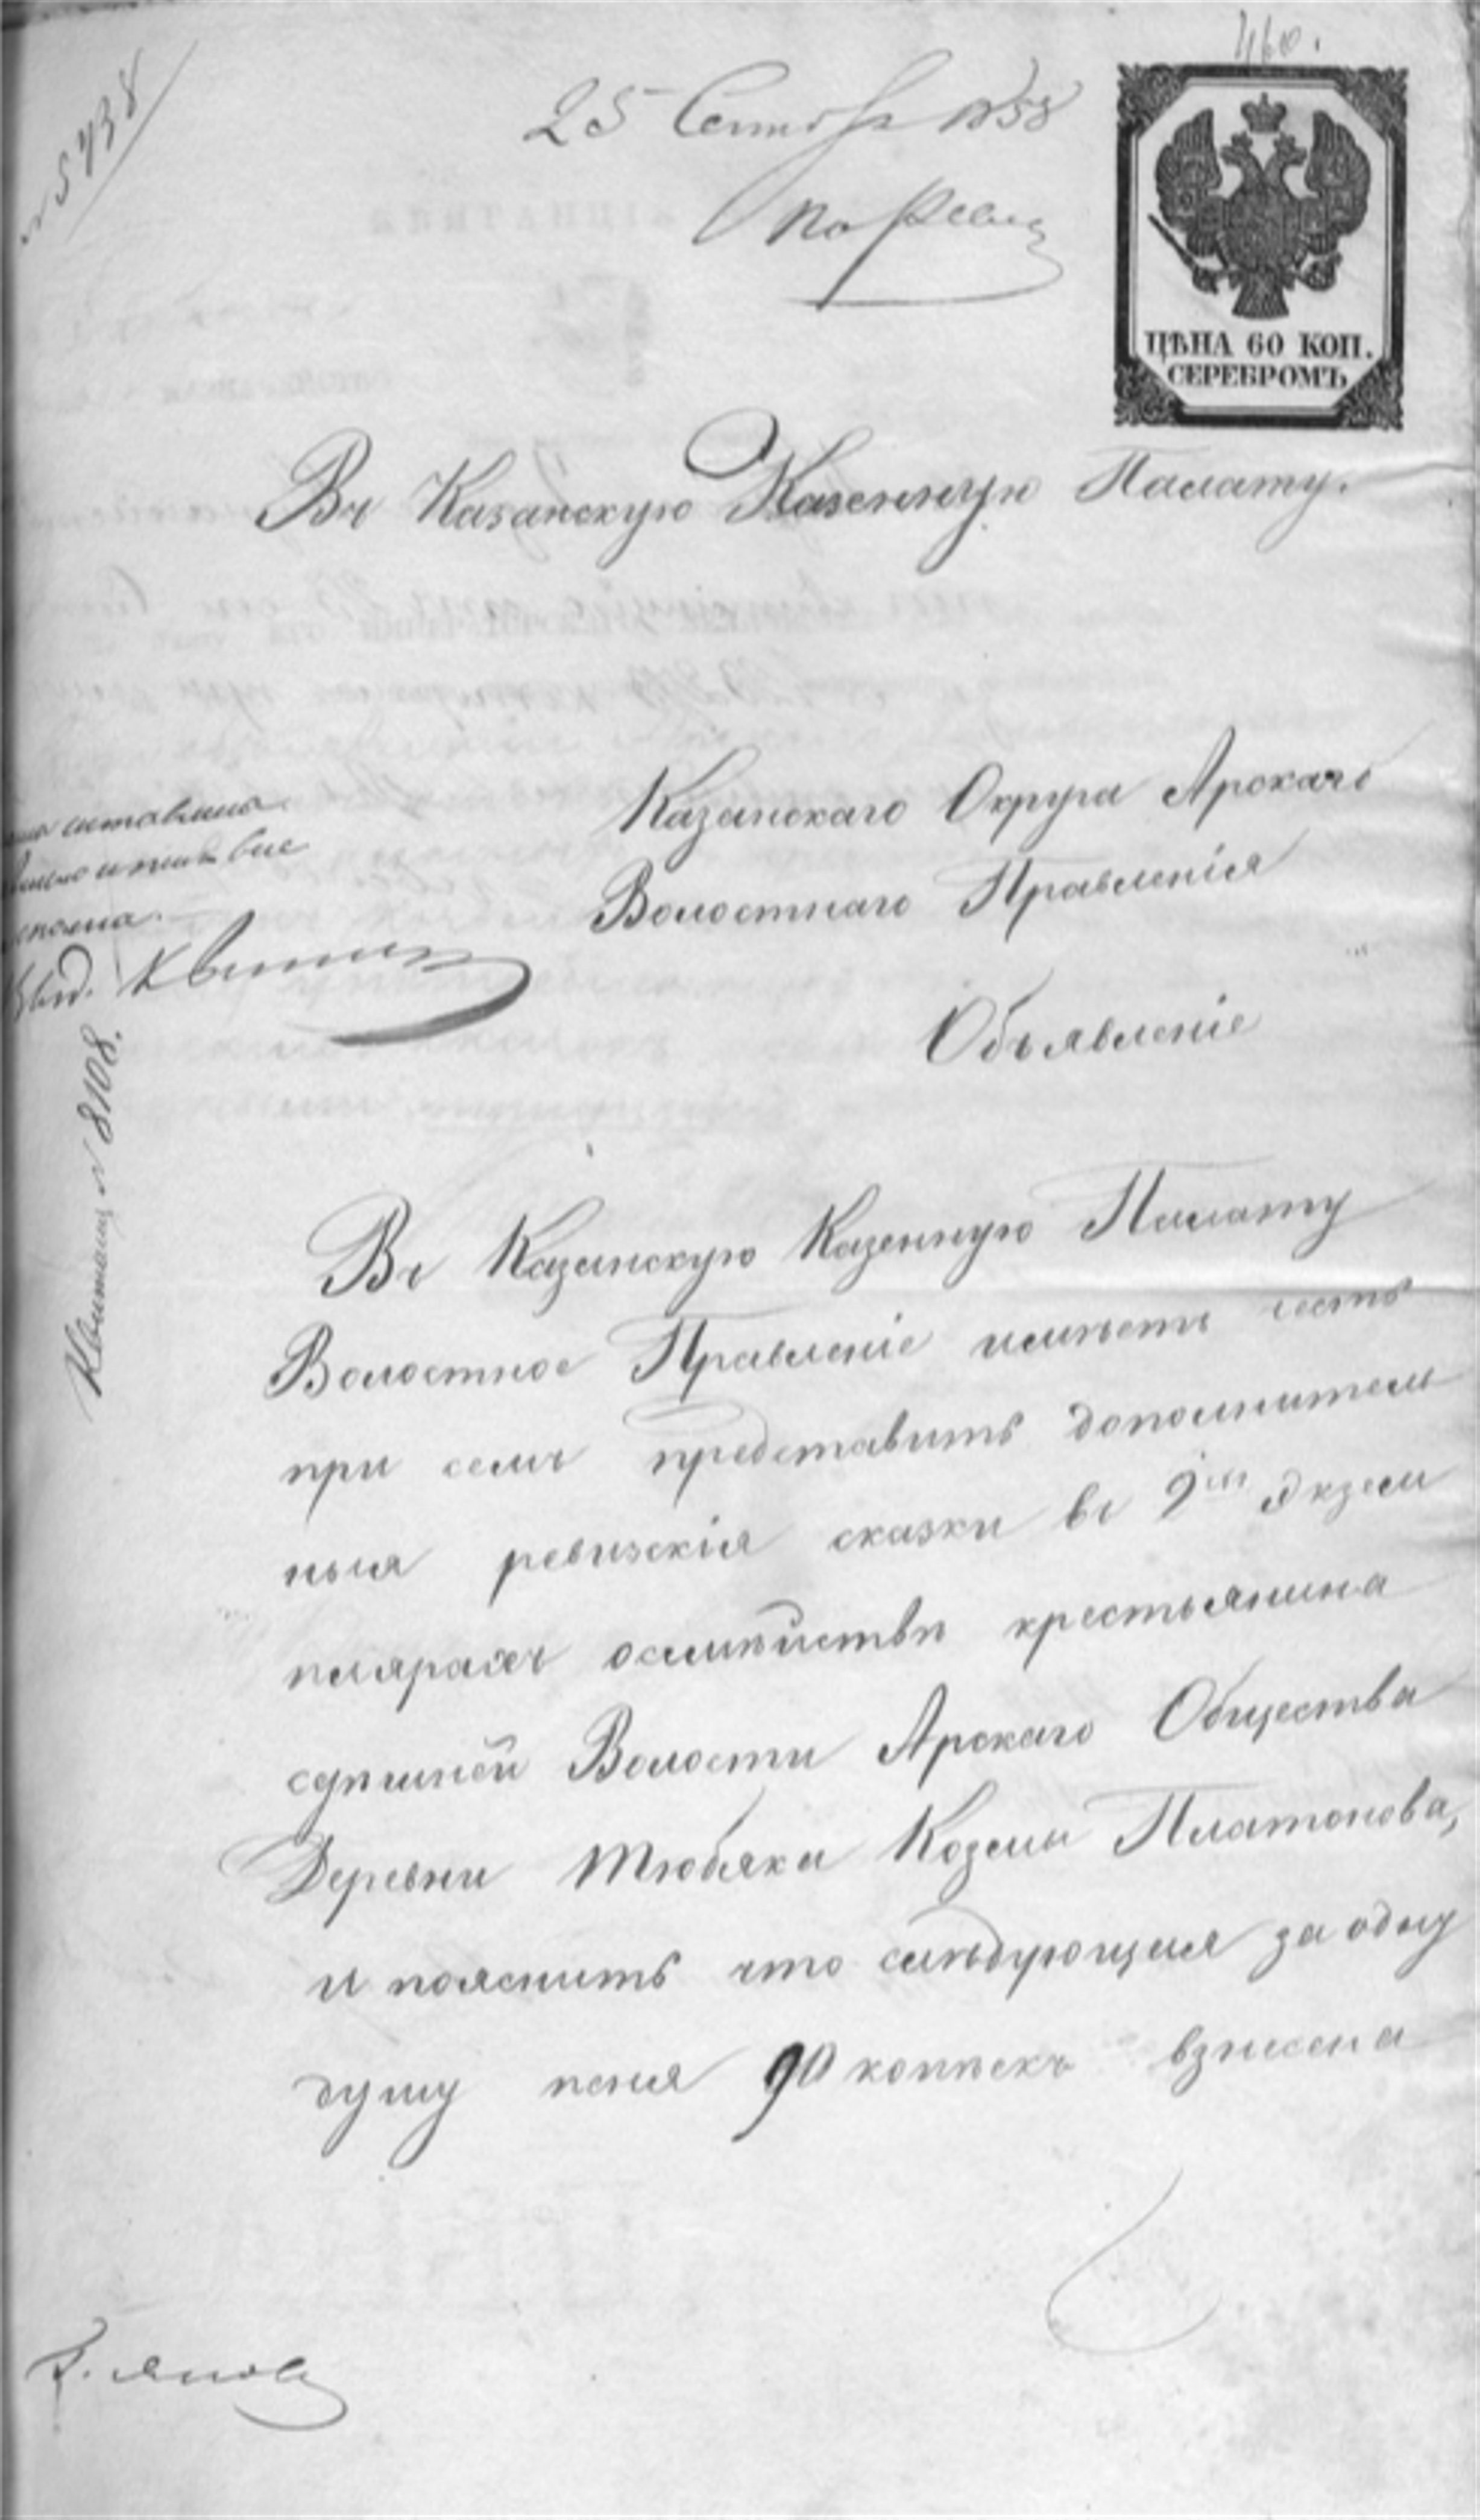 460.
№ 5738
25 Сентября 1858
По Ревиз
ЦѢНА 60 КОП.
СЕРЕБРОМЪ
Въ Казанскую Казенную Палату.
Казанскаго Округа Арскаго
Волостнаго Правленія
Объявленіе
Квитанц № 8108.
Въ Казанскую Казенную Палату
Волостное Правленіе имѣетъ честь
при семъ представить дополнитель
ныя ревизскія сказки въ 2хъ экзем
плярахъ осемѣйствѣ крестьянина
сдѣшней Волости Арскаго Общества
Деревни Тюбяка Козмы Платонова,
и пояснить что слѣдующая за одну
душу пеня 90 копѣекъ взнесена